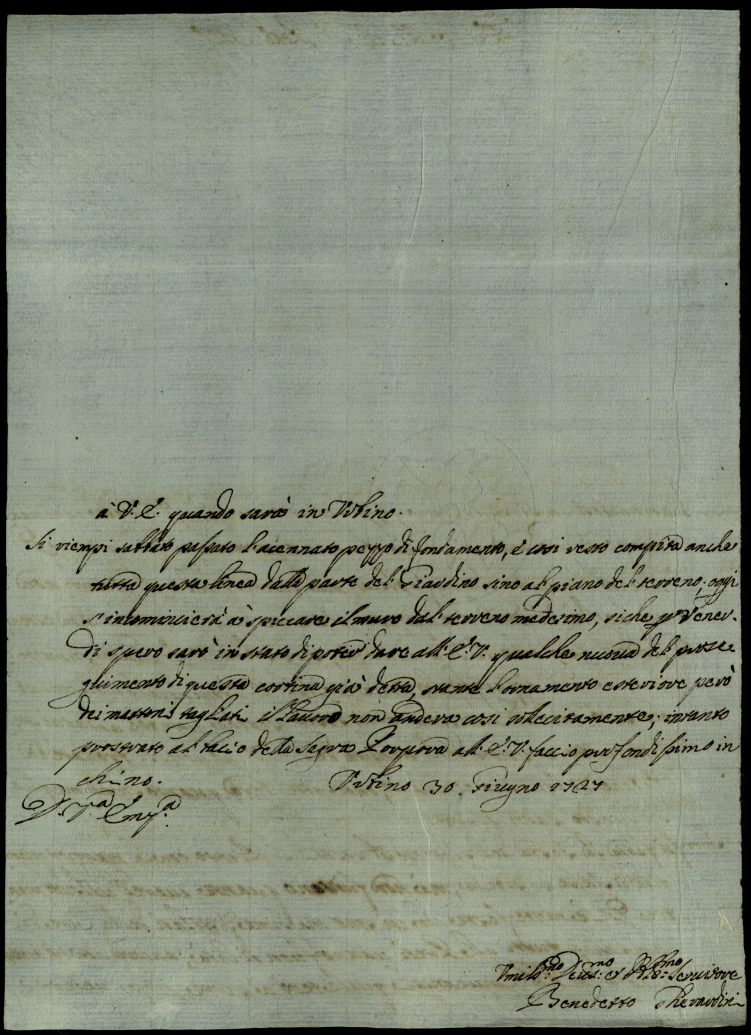 à V. E. quando sarà in Vrbino.
Si riempi sabbato passato l'acennato pezzo di fondamento, è così restò compita anche
tutta questa linea dalla parte del Giardino sino al piano del terreno; oggi
s'incomincierà à spiccare il muro dal terreno medesimo, siche p Vener-
di spero sarò in stato di poter dare all'E. V. qualche nuova del prose-
guimento di questa cortina già detta, stante l'ornamento esteriore però
dei mattoni tagliati il lavoro non anderà così sollecitamente; intanto
prostrato al bacio della Sagra Porpora all'E. V. faccio profondissimo in
chino.
Vrbino 30. Giugno 1727
D. V.ra Em.za
Vmil.mo Deu.mo et Obb.mo Seruitore
Benedetto